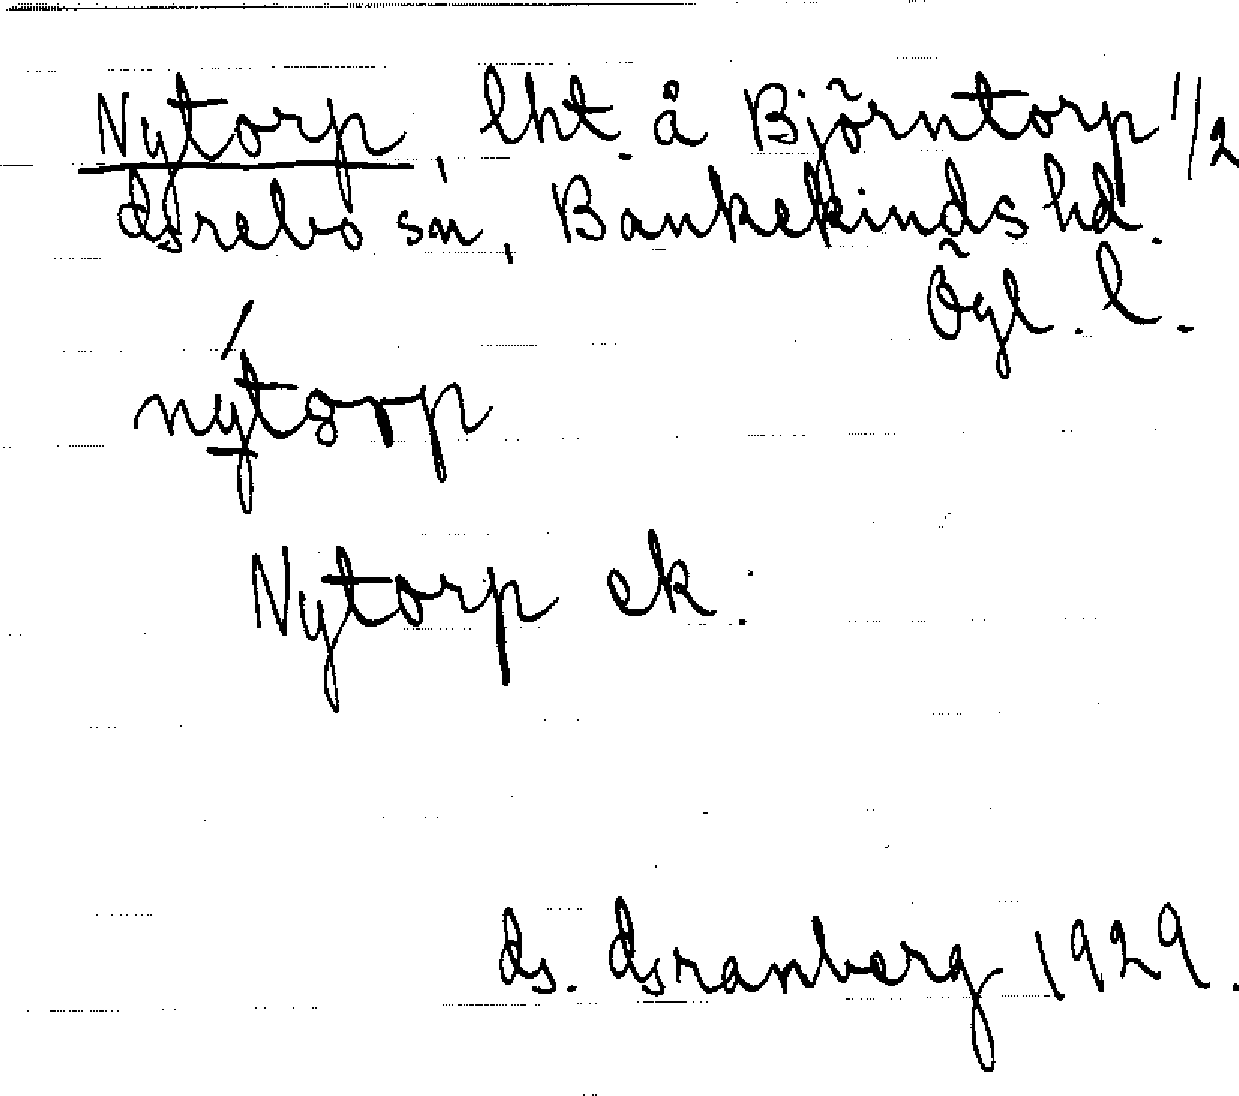 Nytorp, lht. å Björntorp 1/2
Grebo sn, Bankekinds hd.
Ögl. l.
nýtorp
Nytorp ek.
G. Granberg 1929.